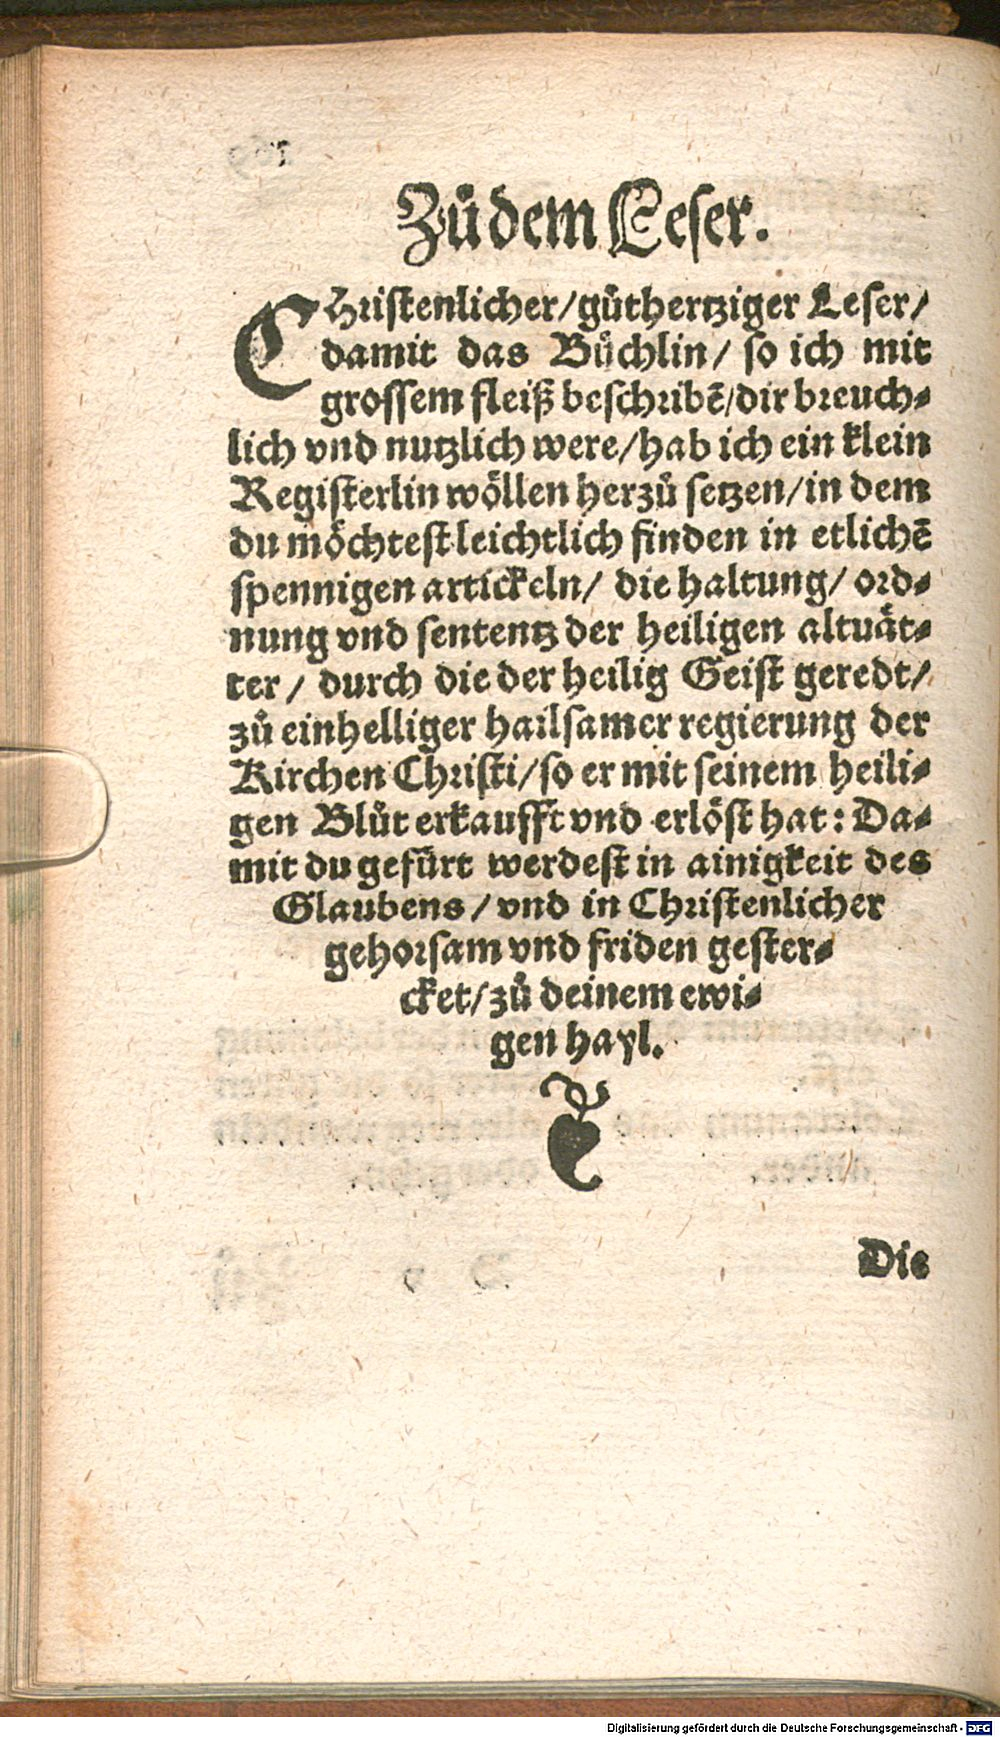 Zů dem Leser.
CHristenlicher/gůthertziger Leser/
damit das Bůchlin/ so ich mit
grossem fleiß beschribẽ/dir breuch-
lich vnd nutzlich were/hab ich ein klein
Registerlin wöllen herzů setzen/in dem
du möchtest leichtlich finden in etlichẽ
spennigen artickeln/ die haltung/ ord-
nung vnd sententz der heiligen altuät-
ter/ durch die der heilig Geist geredt/
zů einhelliger hailsamer regierung der
Kirchen Christi/so er mit seinem heili-
gen Blůt erkaufft vnd erlöst hat: Da-
mit du gefürt werdest in ainigkeit des
Glaubens/vnd in Christenlicher
gehorsam vnd friden gester-
cket/zů deinem ewi-
gen hayl.
Die
Digitalisierung gefördert durch die Deutsche Forschungsgemeinschaft - DFG